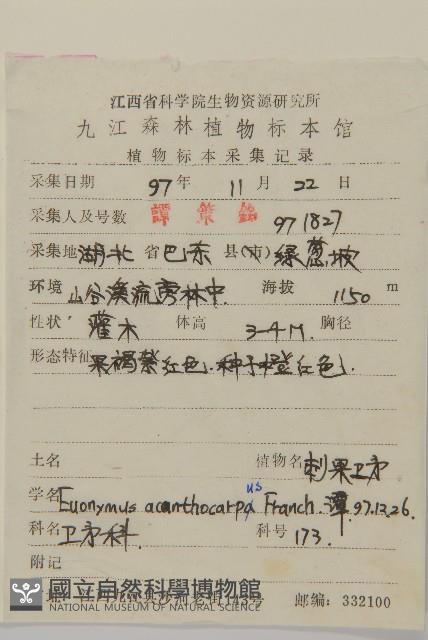 江西省科学院生物资源研究所
九江森林植物标本馆
植物标本采集记录
采集日期 97年 11月 22日
采集人及号数 譚策銘 971827
采集地 湖北省巴东县(市)绿葱坡
环境 山谷溪流旁林中 海拔 1150m
性状 灌木 体高 3-4M. 胸径
形态特征 果褐紫红色、种子橙红色、
土名 植物名 刺果卫矛
学名 Euonymus acanthocarpus Franch. 譚.97.12.26.
科名 卫矛科. 科号 173.
附记
國立自然科學博物館
NATIONAL MUSEUM OF NATURAL SCIENCE
邮编: 332100